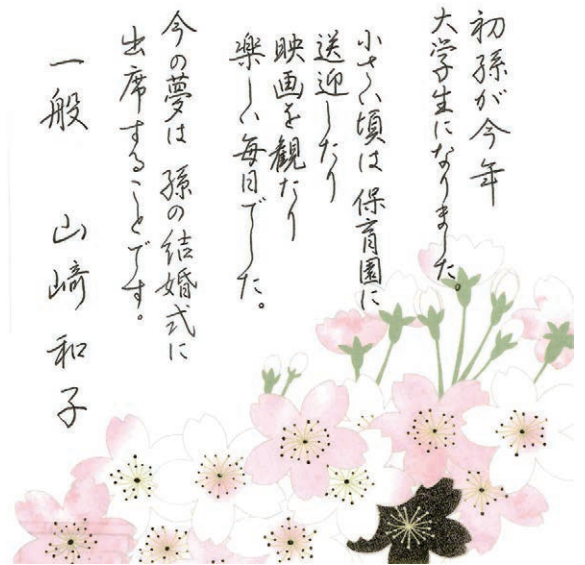 初孫が今年
大学生になりました。
小さい頃は保育園に
送迎したり
映画を観たり
楽しい毎日でした。
今の夢は 孫の結婚式に
出席することです。
一般 山﨑和子